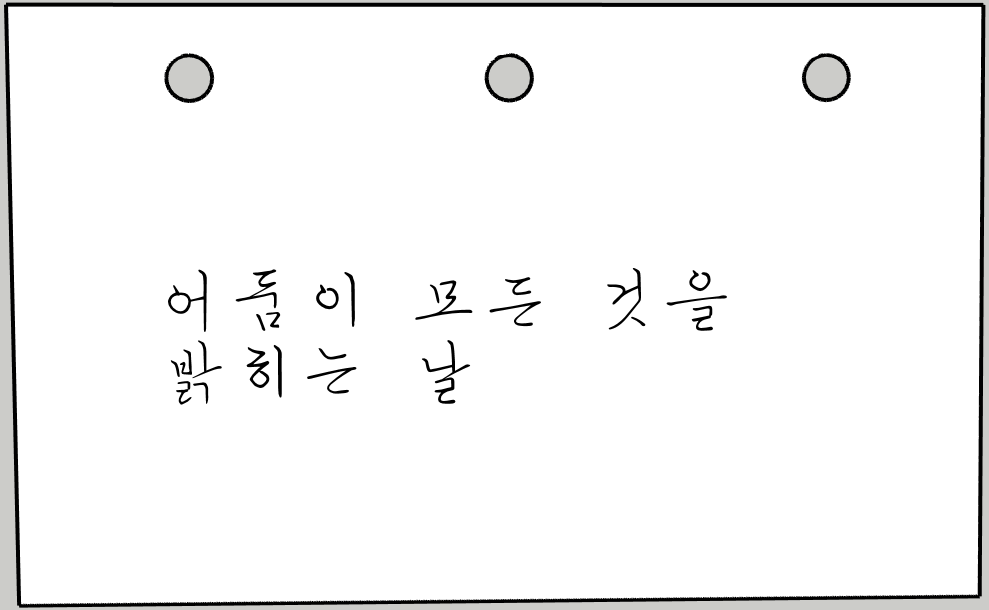 어둠이 모든 것을
밝히는 날